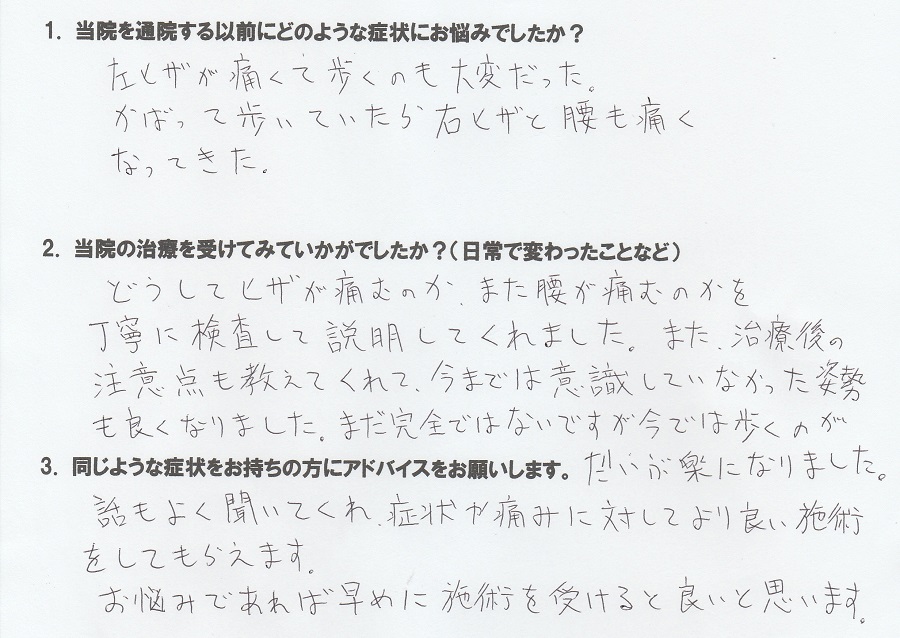 1. 当院を通院する以前にどのような症状にお悩みでしたか？
左ヒザが痛くて歩くのも大変だった。
かばって歩いていたら右ヒザと腰も痛く
なってきた。
2. 当院の治療を受けてみていかがでしたか？（日常で変わったことなど）
どうしてヒザが痛むのか、また腰が痛むのかを
丁寧に検査して説明してくれました。また、治療後の
注意点も教えてくれて、今までは意識していなかった姿勢
も良くなりました。まだ完全ではないですが今では歩くのが
だいぶ楽になりました。
3. 同じような症状をお持ちの方にアドバイスをお願いします。
話もよく聞いてくれ、症状や痛みに対してより良い施術
をしてもらえます。
お悩みであれば早めに施術を受けると良いと思います。